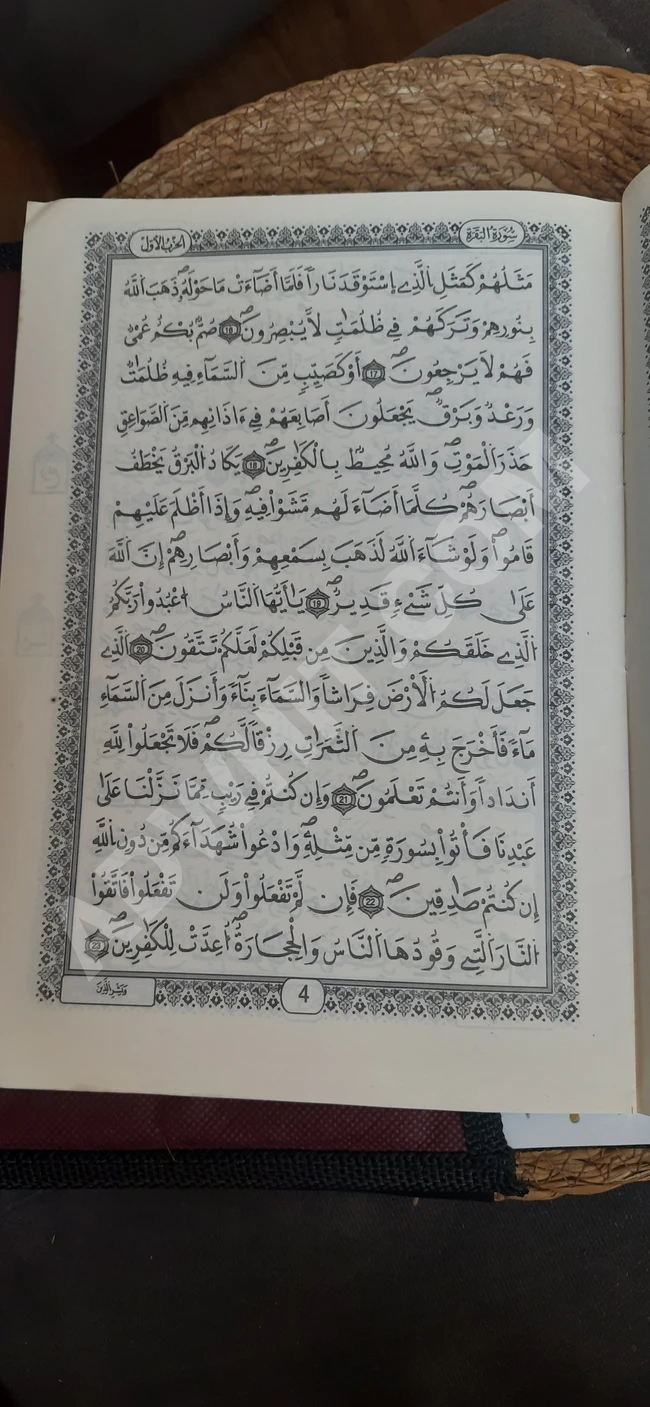 سُورَةُ الْبَقَرَةِ
الحِزْبُ الأَوَّلُ
مَثَلُهُمْ كَمَثَلِ اِ۬لذِے اِ۪سْتَوْقَدَ نَاراٗ فَلَمَّآ أَضَآءَتْ مَا حَوْلَهُۥ ذَهَبَ اَ۬للَّهُ
بِنُورِهِمْ وَتَرَكَهُمْ فِے ظُلُمَٰتٖ لَّا يُبْصِرُونَۖ 16 صُمُّۢ بُكْمٌ عُمْيٞ
فَهُمْ لَا يَرْجِعُونَۖ 17 أَوْ كَصَيِّبٖ مِّنَ اَ۬لسَّمَآءِ فِيهِ ظُلُمَٰتٞ
وَرَعْدٞ وَبَرْقٞۖ يَجْعَلُونَ أَصَٰبِعَهُمْ فِےٓ ءَاذَانِهِم مِّنَ اَ۬لصَّوَٰعِقِ
حَذَرَ اَ۬لْمَوْتِۖ وَاللَّهُ مُحِيطُۢ بِالْكَٰفِرِينَۖ 18 يَكَادُ اُ۬لْبَرْقُ يَخْطَفُ
أَبْصَٰرَهُمْۖ كُلَّمَآ أَضَآءَ لَهُم مَّشَوْاْ فِيهِۖ وَإِذَآ أَظْلَمَ عَلَيْهِمْ
قَامُواْۖ وَلَوْ شَآءَ اَ۬للَّهُ لَذَهَبَ بِسَمْعِهِمْ وَأَبْصَٰرِهِمْۖ إِنَّ اَ۬للَّهَ
عَلَىٰ كُلِّ شَےْءٖ قَدِيرٞۖ 19 يَٰٓأَيُّهَا اَ۬لنَّاسُ اُ۟عْبُدُواْ رَبَّكُمُ
اُ۬لذِے خَلَقَكُمْ وَالذِينَ مِن قَبْلِكُمْ لَعَلَّكُمْ تَتَّقُونَۖ 20 اَ۬لذِے
جَعَلَ لَكُمُ اُ۬لْأَرْضَ فِرَٰشاٗ وَالسَّمَآءَ بِنَآءٗ وَأَنزَلَ مِنَ اَ۬لسَّمَآءِ
مَآءٗ فَأَخْرَجَ بِهِۦ مِنَ اَ۬لثَّمَرَٰتِ رِزْقاٗ لَّكُمْۖ فَلَا تَجْعَلُواْ لِلهِ
أَندَاداٗ وَأَنتُمْ تَعْلَمُونَۖ 21 وَإِن كُنتُمْ فِے رَيْبٖ مِّمَّا نَزَّلْنَا عَلَىٰ
عَبْدِنَا فَأْتُواْ بِسُورَةٖ مِّن مِّثْلِهِۦۖ وَادْعُواْ شُهَدَآءَكُم مِّن دُونِ اِ۬للَّهِ
إِن كُنتُمْ صَٰدِقِينَۖ 22 فَإِن لَّمْ تَفْعَلُواْ وَلَن تَفْعَلُواْ فَاتَّقُواْ
اُ۬لنَّارَ اَ۬لتِے وَقُودُهَا اَ۬لنَّاسُ وَالْحِجَارَةُۖ أُعِدَّتْ لِلْكَٰفِرِينَۖ 23
4
وَبَشِّرِ الذِينَ